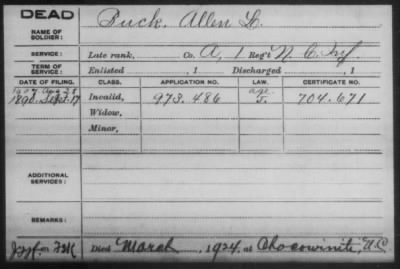 DEAD
NAME OF SOLDIER: Puck, Allen L.
SERVICE: Late rank, Co. A, 1 Reg't N. C. Inf.
TERM OF SERVICE: Enlisted , 1 Discharged , 1
DATE OF FILING. CLASS. APPLICATION NO. LAW. CERTIFICATE NO.
1907 Aug 28 age
1890. Sept. 17 Invalid, 973.486 J. 704.671
Widow,
Minor,
ADDITIONAL SERVICES:
REMARKS:
Died March , 1924, at Chocowinite, N.C.